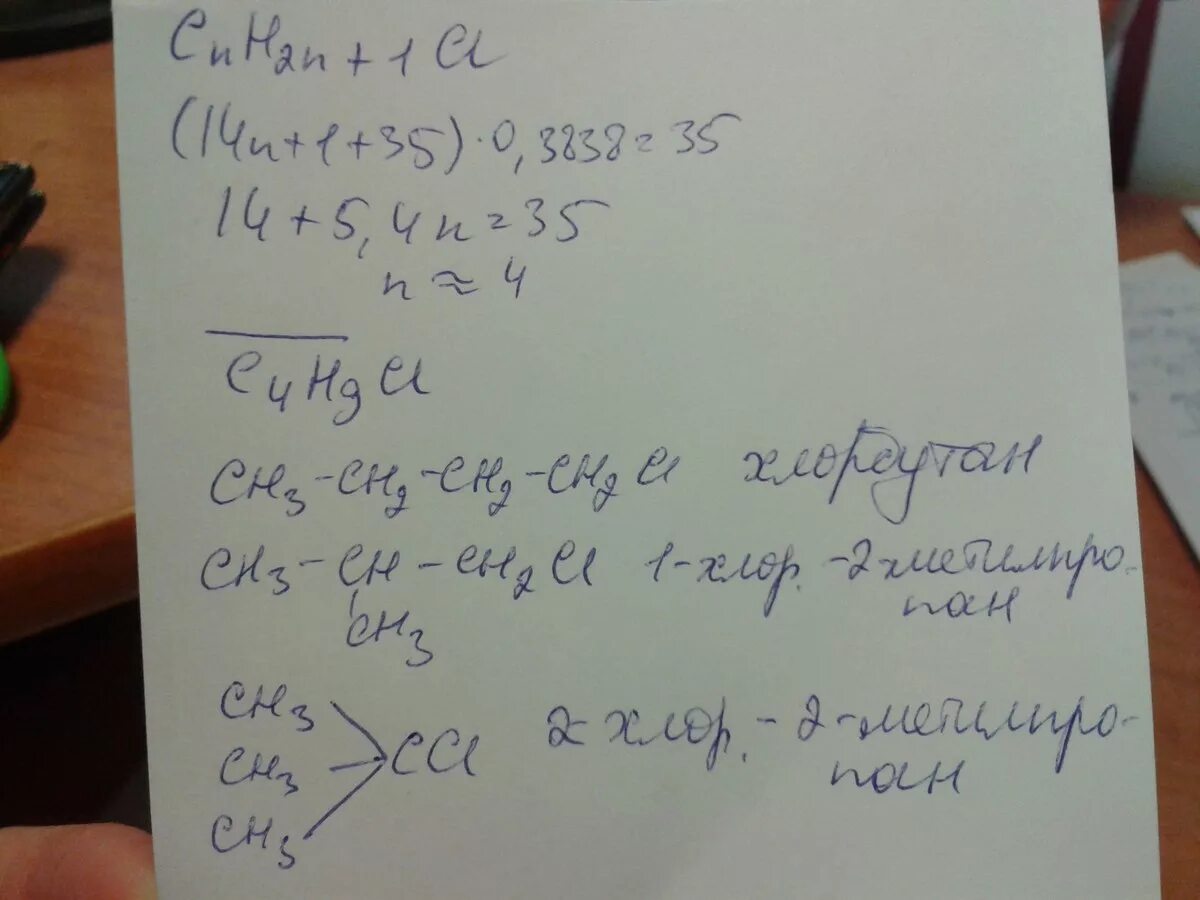 CnH2n+1Cl
(14n+1+35)·0,3838=35
14+5,4n=35
n≈4
C4H9Cl
CH3-CH2-CH2-CH2Cl хлорбутан
CH3-CH-CH2Cl 1-хлор.-2-метилпро-
пан
CH3
CH3
CH3 CCl 2-хлор.-2-метилпро-
пан
CH3